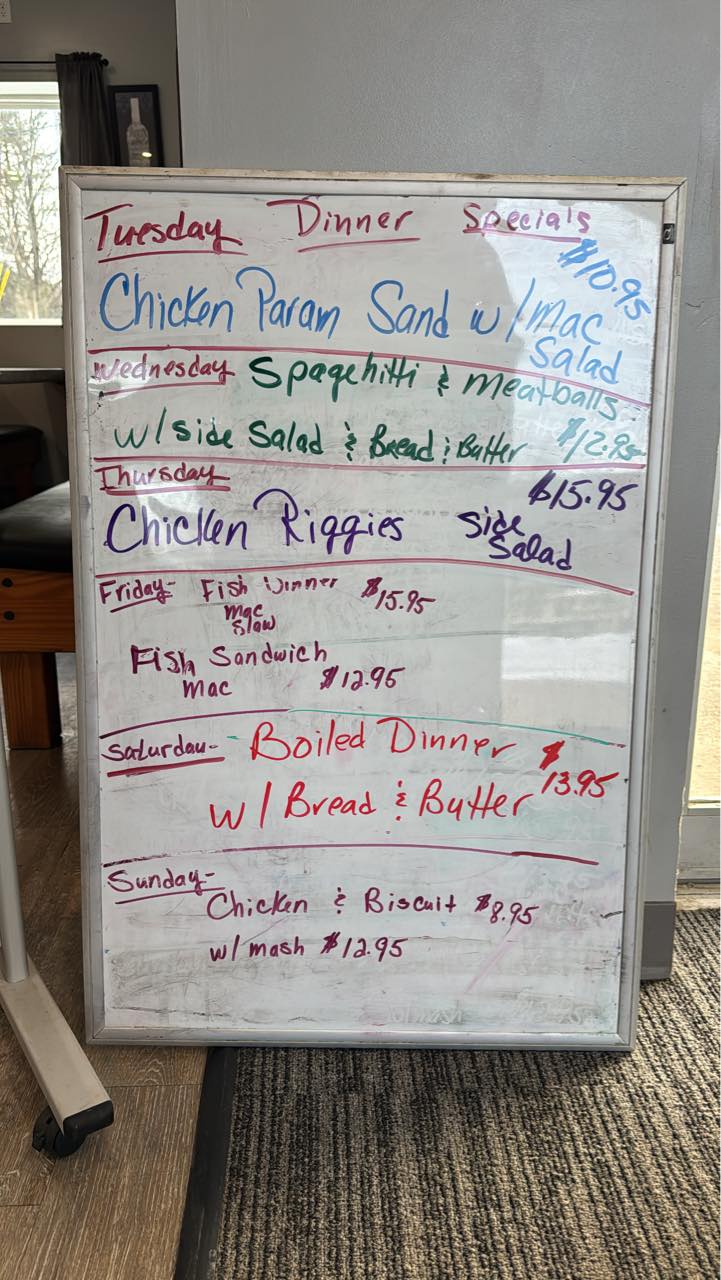 Tuesday Dinner Specials
$10.95
Chicken Param Sand w/Mac
Salad
Wednesday Spagehitti & Meatballs
w/side Salad & Bread & Butter $12.95
Thursday
$15.95
Chicken Riggies Side
Salad
Friday- Fish Dinner $15.95
Mac
Slaw
Fish Sandwich
Mac $12.95
Saturday- Boiled Dinner $
13.95
w/Bread & Butter
Sunday-
Chicken & Biscuit $8.95
w/mash $12.95